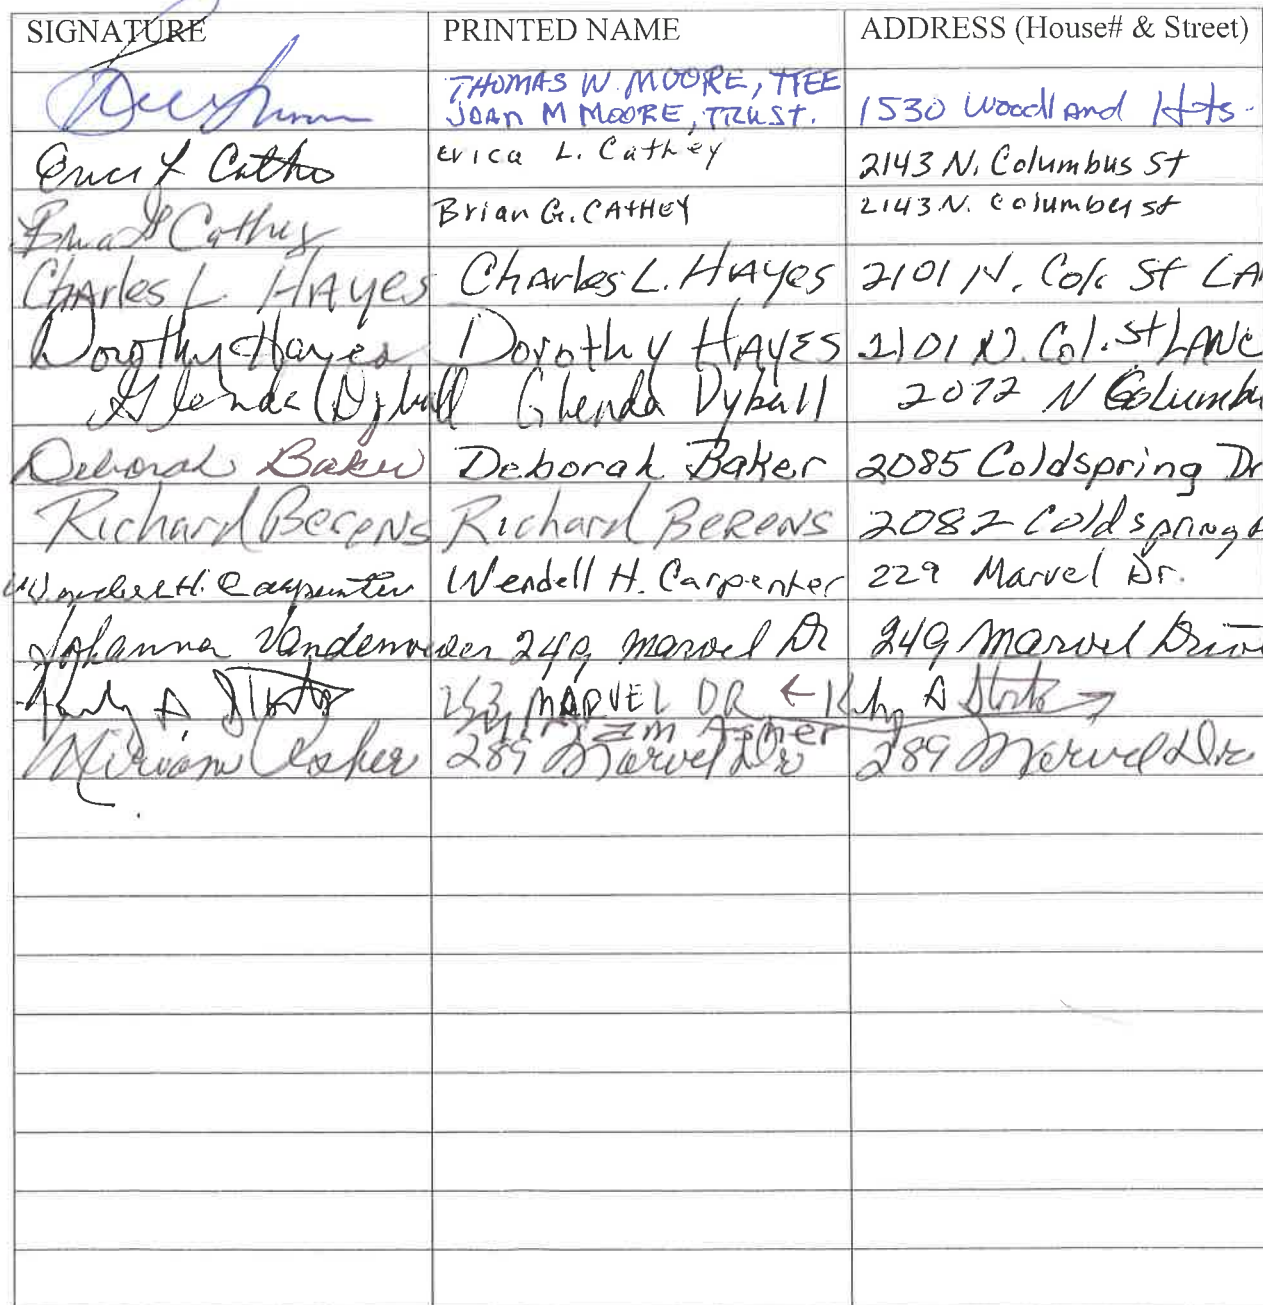 SIGNATURE PRINTED NAME ADDRESS (House# & Street)
THOMAS W. MOORE, TTEE
JOAN M MOORE, TRUST. 1530 Woodland Hts.
Erica L. Cathey 2143 N. Columbus St
Brian G. CATHEY 2143 N. Columbus st
Charles L. HAYES Charles L. HAYES 2101 N. Col. St LA
Dorothy Hayes Dorothy HAYES 2101 N. Col. St LANC
Glenda Dyball Glenda Dyball 2072 N Columbu
Deborah Baker Deborah Baker 2085 Coldspring Dr
Richard BERENS Richard BERENS 2082 Coldspring
Wendell H. Carpenter Wendell H. Carpenter 229 Marvel Dr.
Johanna 249 Marvel Dr 249 Marvel Drive
A MARVEL DR ← A →
Miriam
289 Marvel Dr 289 Marvel Dr